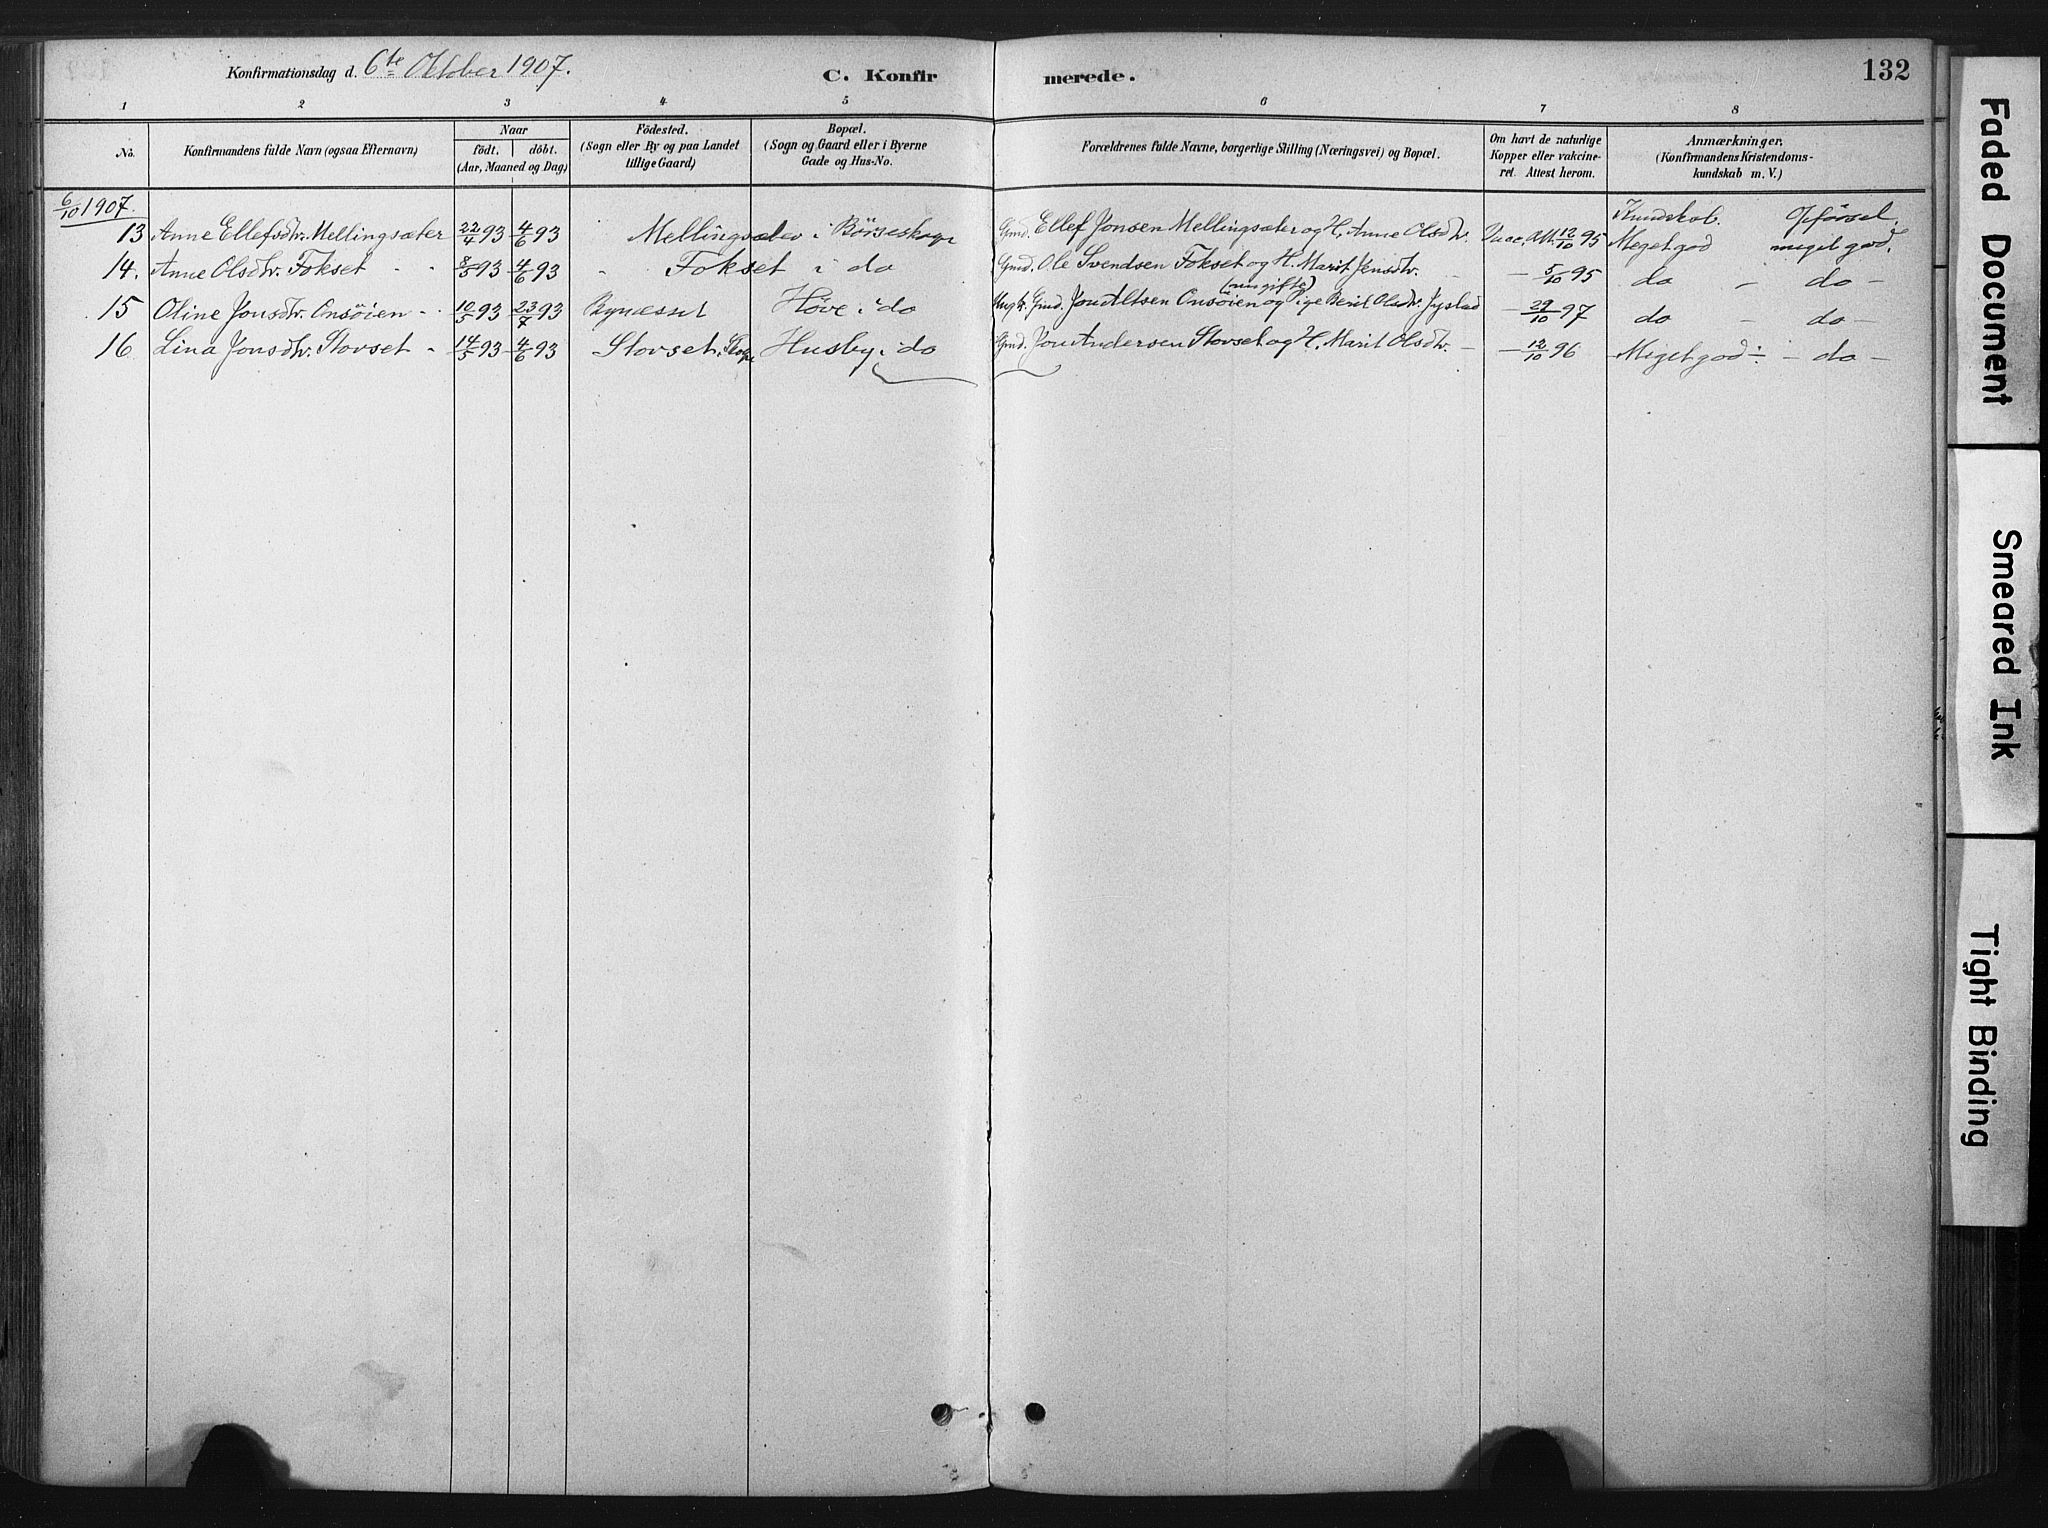 Konfirmationsdag d. 6te Oktober 1907.
C. Konfirmerede.
132
1 2 3 4 5 6 7 8
No.
Konfirmandens fulde Navn (ogsaa Efternavn)
Naar
födt. döbt.
(Aar, Maaned og Dag)
Födested.
(Sogn eller By og paa Landet
tillige Gaard)
Bopæl.
(Sogn og Gaard eller i Byerne
Gade og Hus-No.
Forældrenes fulde Navne, borgerlige Stilling (Næringsvei) og Bopæl.
Om havt de naturlige
Kopper eller vakcine-
ret. Attest herom.
Anmærkninger.
(Konfirmandens Kristendoms-
kundskab m. V.)
6/10 1907.
Kundskab. Opförsel.
13 Anne Ellefsdtr. Mellingsæter 22/4 93 4/6 93 Mellingsæter i Börseskogn Gmd. Ellef Jonsen Mellingsæter og H. Anne Olsdtr. Vacc. Att. 12/10 95 Meget god meget god.
14. Anne Olsdtr. Fokset - - 8/5 93 4/6 93 - Fokset i do Gmd. Ole Svendsen Fokset og H. Marit Jensdtr. - - 5/10 95 do - do -
15 Oline Jonsdtr. Onsöien - - 10/5 93 23/7 93 Bynesset Höve i do Ungk. Gmd. Jon Altsen Onsöien og (ugifte) Pige Berit Olsdtr. Jystad - 29/10 97 do - do -
16 Lina Jonsdtr. Stovset - 14/5 93 - 4/6 93 Stovset i Skogn Husby i do Gmd. Jon Andersen Stovset og H. Marit Olsdtr. - - 12/10 96 Meget god ÷ - do -
Faded Document
Smeared Ink
Tight Binding